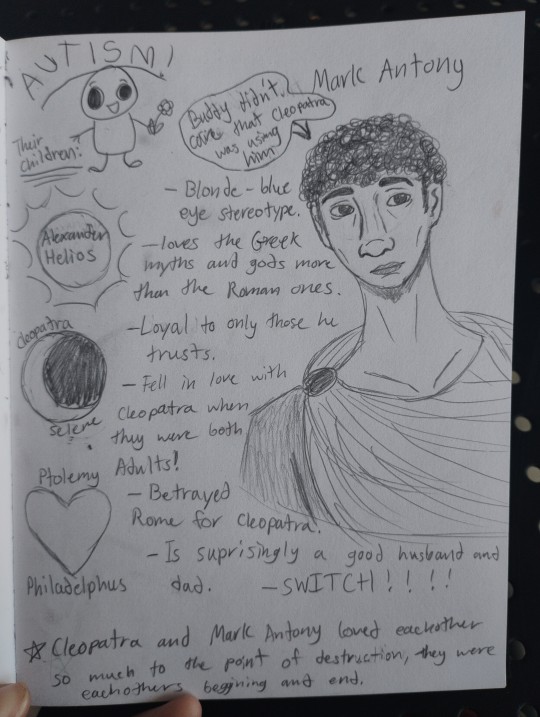 AUTISM!
Mark Antony
Buddy didn't
care that Cleopatra
was using
him
Their
children:
Alexander
Helios
Cleopatra
Selene
Ptolemy
Philadelphus
- Blonde - blue
eye stereotype.
- loves the Greek
myths and gods more
than the Roman ones.
- Loyal to only those he
trusts.
- Fell in love with
Cleopatra when
they were both
Adults!
- Betrayed
Rome for Cleopatra.
- Is suprisingly a good husband and
dad. - SWITCH!!!!
☆ Cleopatra and Mark Antony loved eachother
so much to the point of destruction, they were
eachothers begining and end.